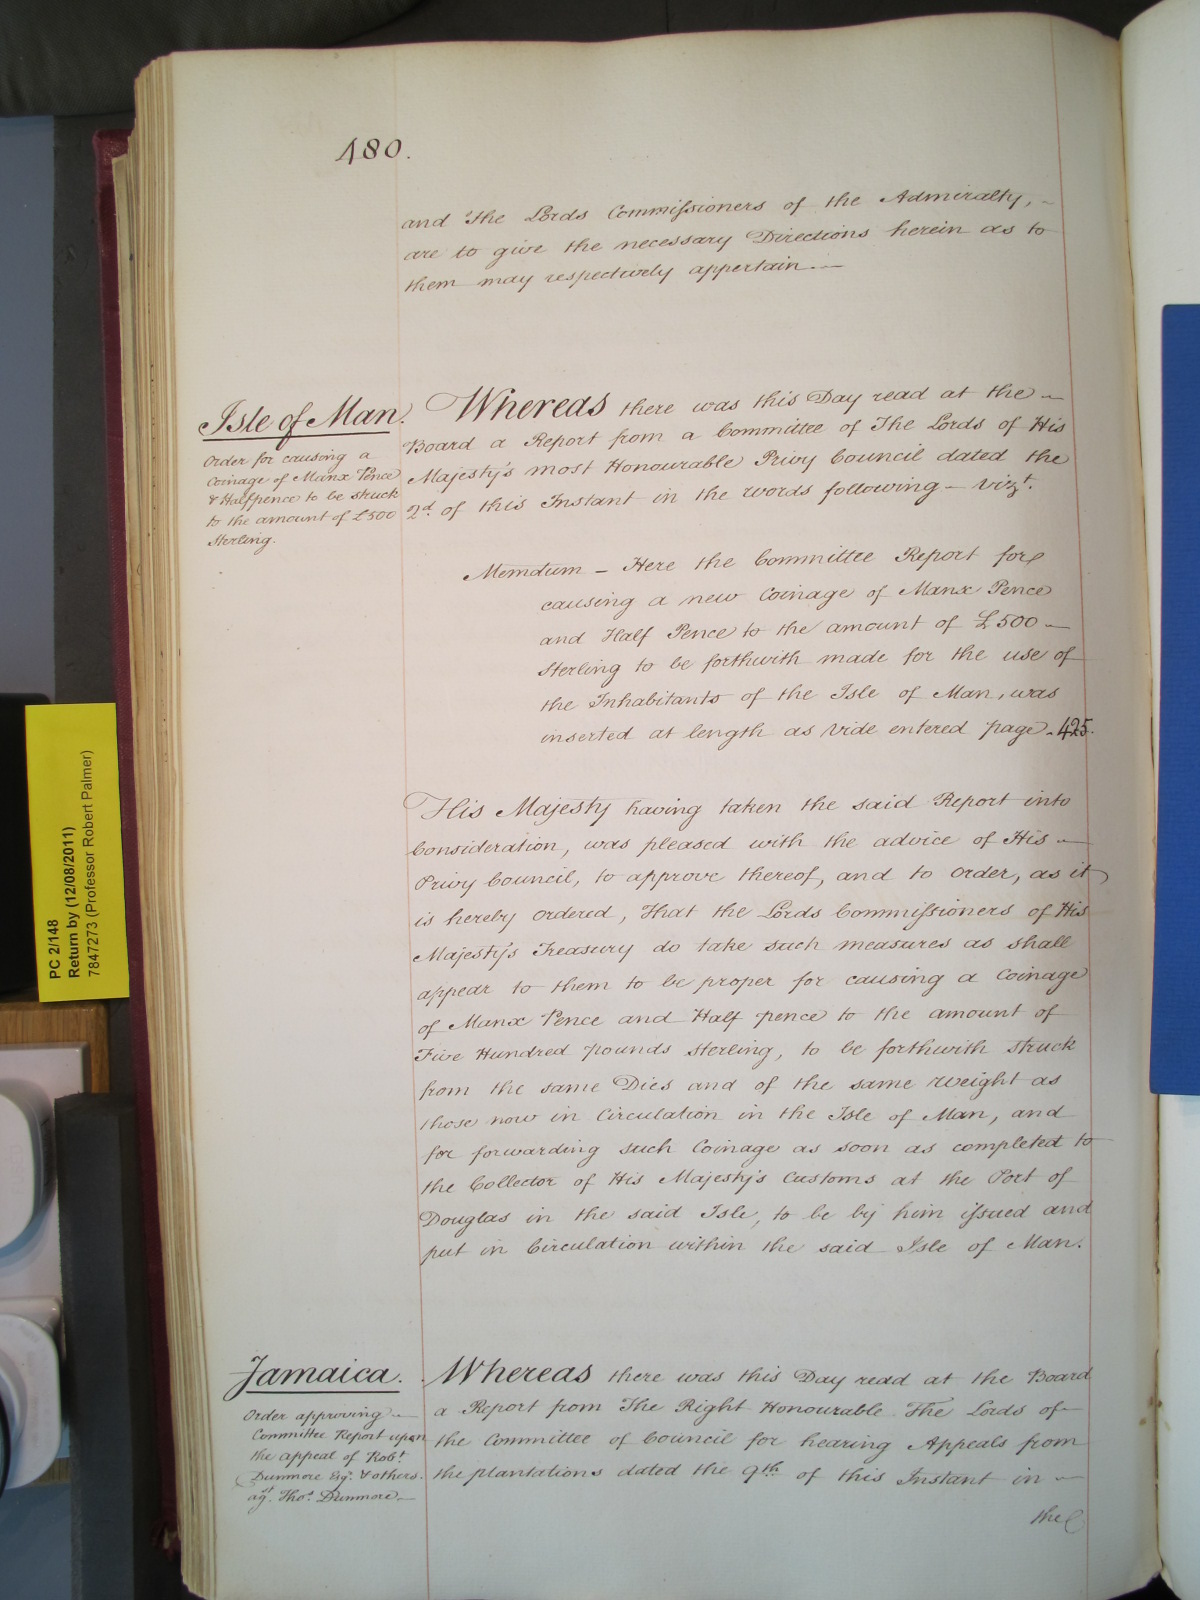 480.
and The Lords Commissioners of the Admiralty, -
are to give the necessary Directions herein as to
them may respectively appertain —
Isle of Man.
Order for causing a
Coinage of Manx Pence
& Halfpence to be struck
to the amount of £500
Sterling.
Whereas there was this Day read at the -
Board a Report from a Committee of The Lords of His
Majesty's most Honourable Privy Council dated the
2d. of this Instant in the words following - vizt.
Memdum - Here the Committee Report for
causing a new Coinage of Manx Pence
and Half Pence to the amount of £500 -
Sterling to be forthwith made for the use of
the Inhabitants of the Isle of Man, was
inserted at length as vide entered page - 425.
His Majesty having taken the said Report into
Consideration, was pleased with the advice of His -
Privy Council, to approve thereof, and to order, as it
is hereby ordered, That the Lords Commissioners of His
Majesty's Treasury do take such measures as shall
appear to them to be proper for causing a Coinage
of Manx Pence and Half pence to the amount of
Five Hundred pounds Sterling, to be forthwith struck
from the same Dies and of the same weight as
those now in Circulation in the Isle of Man, and
for forwarding such Coinage as soon as completed to
the Collector of His Majesty's Customs at the Port of
Douglas in the said Isle, to be by him issued and
put in Circulation within the said Isle of Man.
Jamaica.
Order approving -
Committee Report upon
the appeal of Robt.
Dunmore Esqr. & others.
agt. Thos. Dunmore -
Whereas there was this Day read at the Board
a Report from The Right Honourable The Lords of -
the Committee of Council for hearing Appeals from
the plantations dated the 9th. of this Instant in -
the
PC 2/148
Return by (12/08/2011)
7847273 (Professor Robert Palmer)